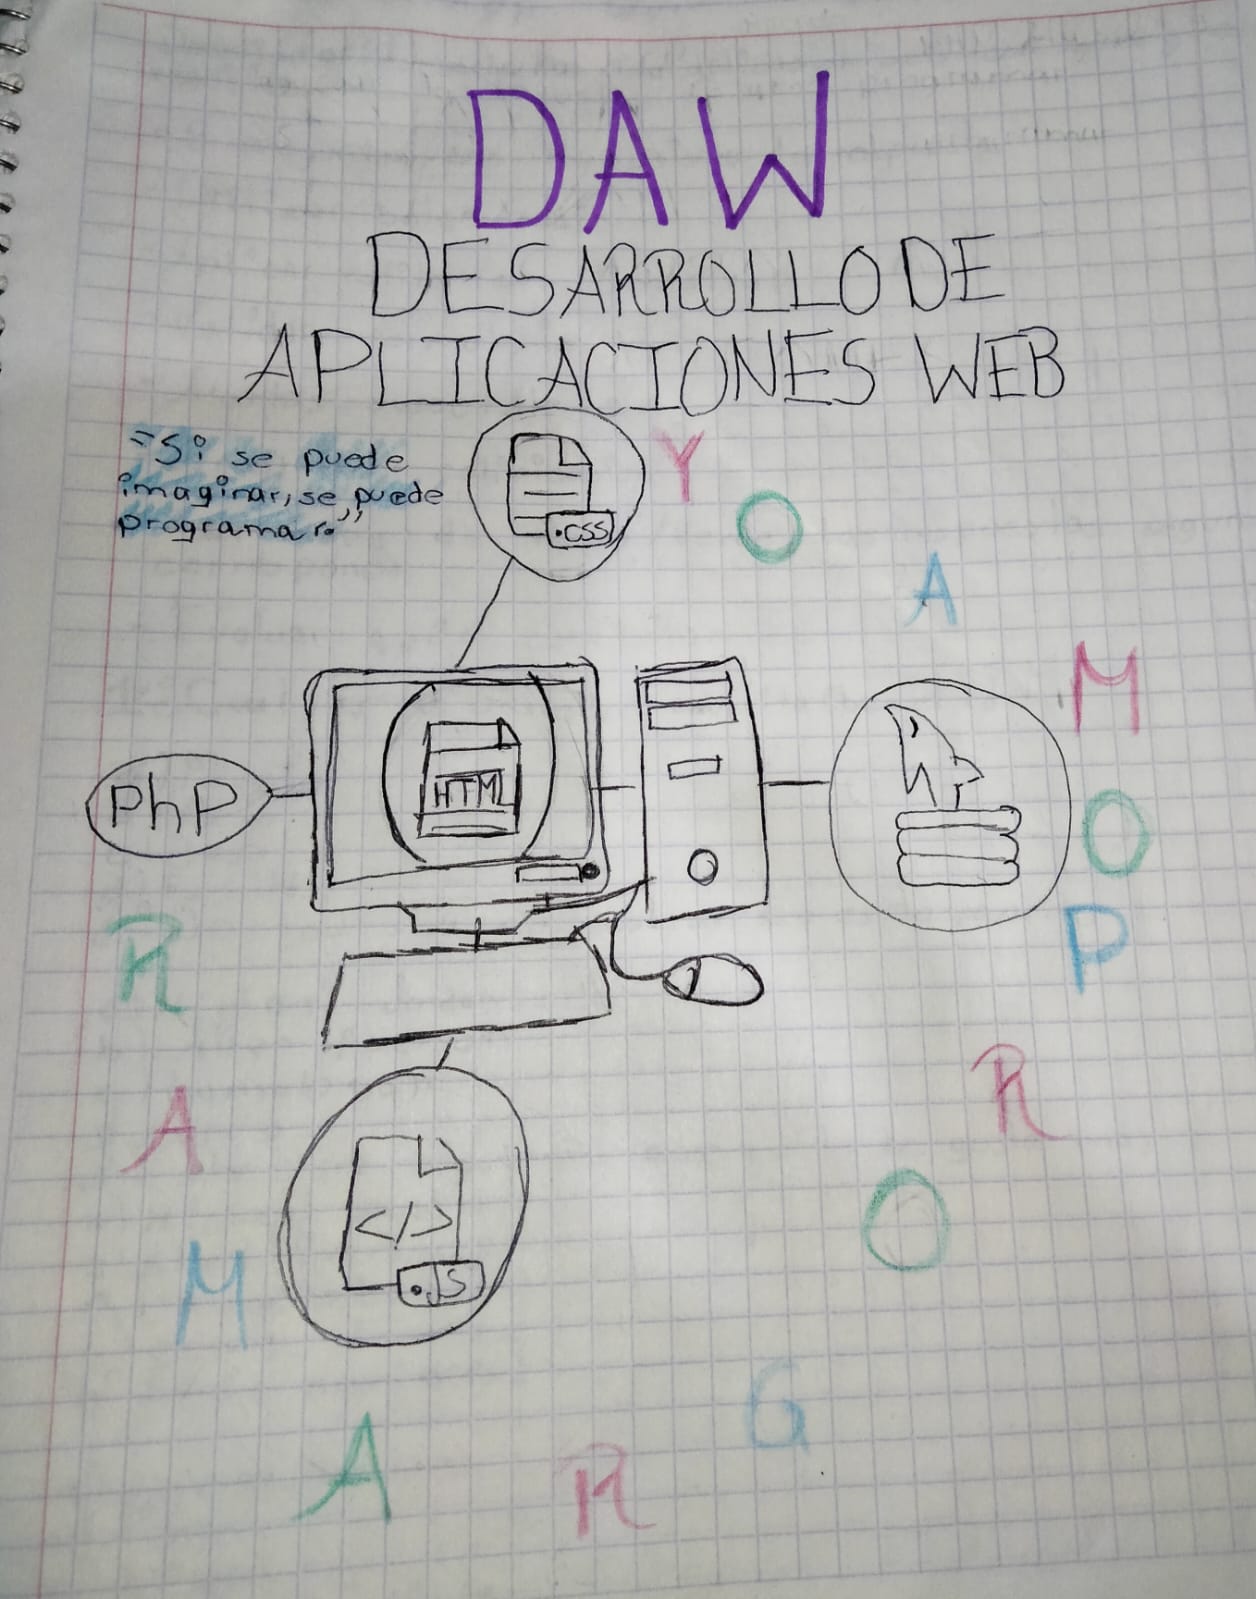 DAW
DESARROLLO DE
APLICACIONES WEB
"Si se puede
imaginar, se puede
programar."
.CSS
HTML
PhP
</>
.JS
Y O A M O P R O G R A M A R